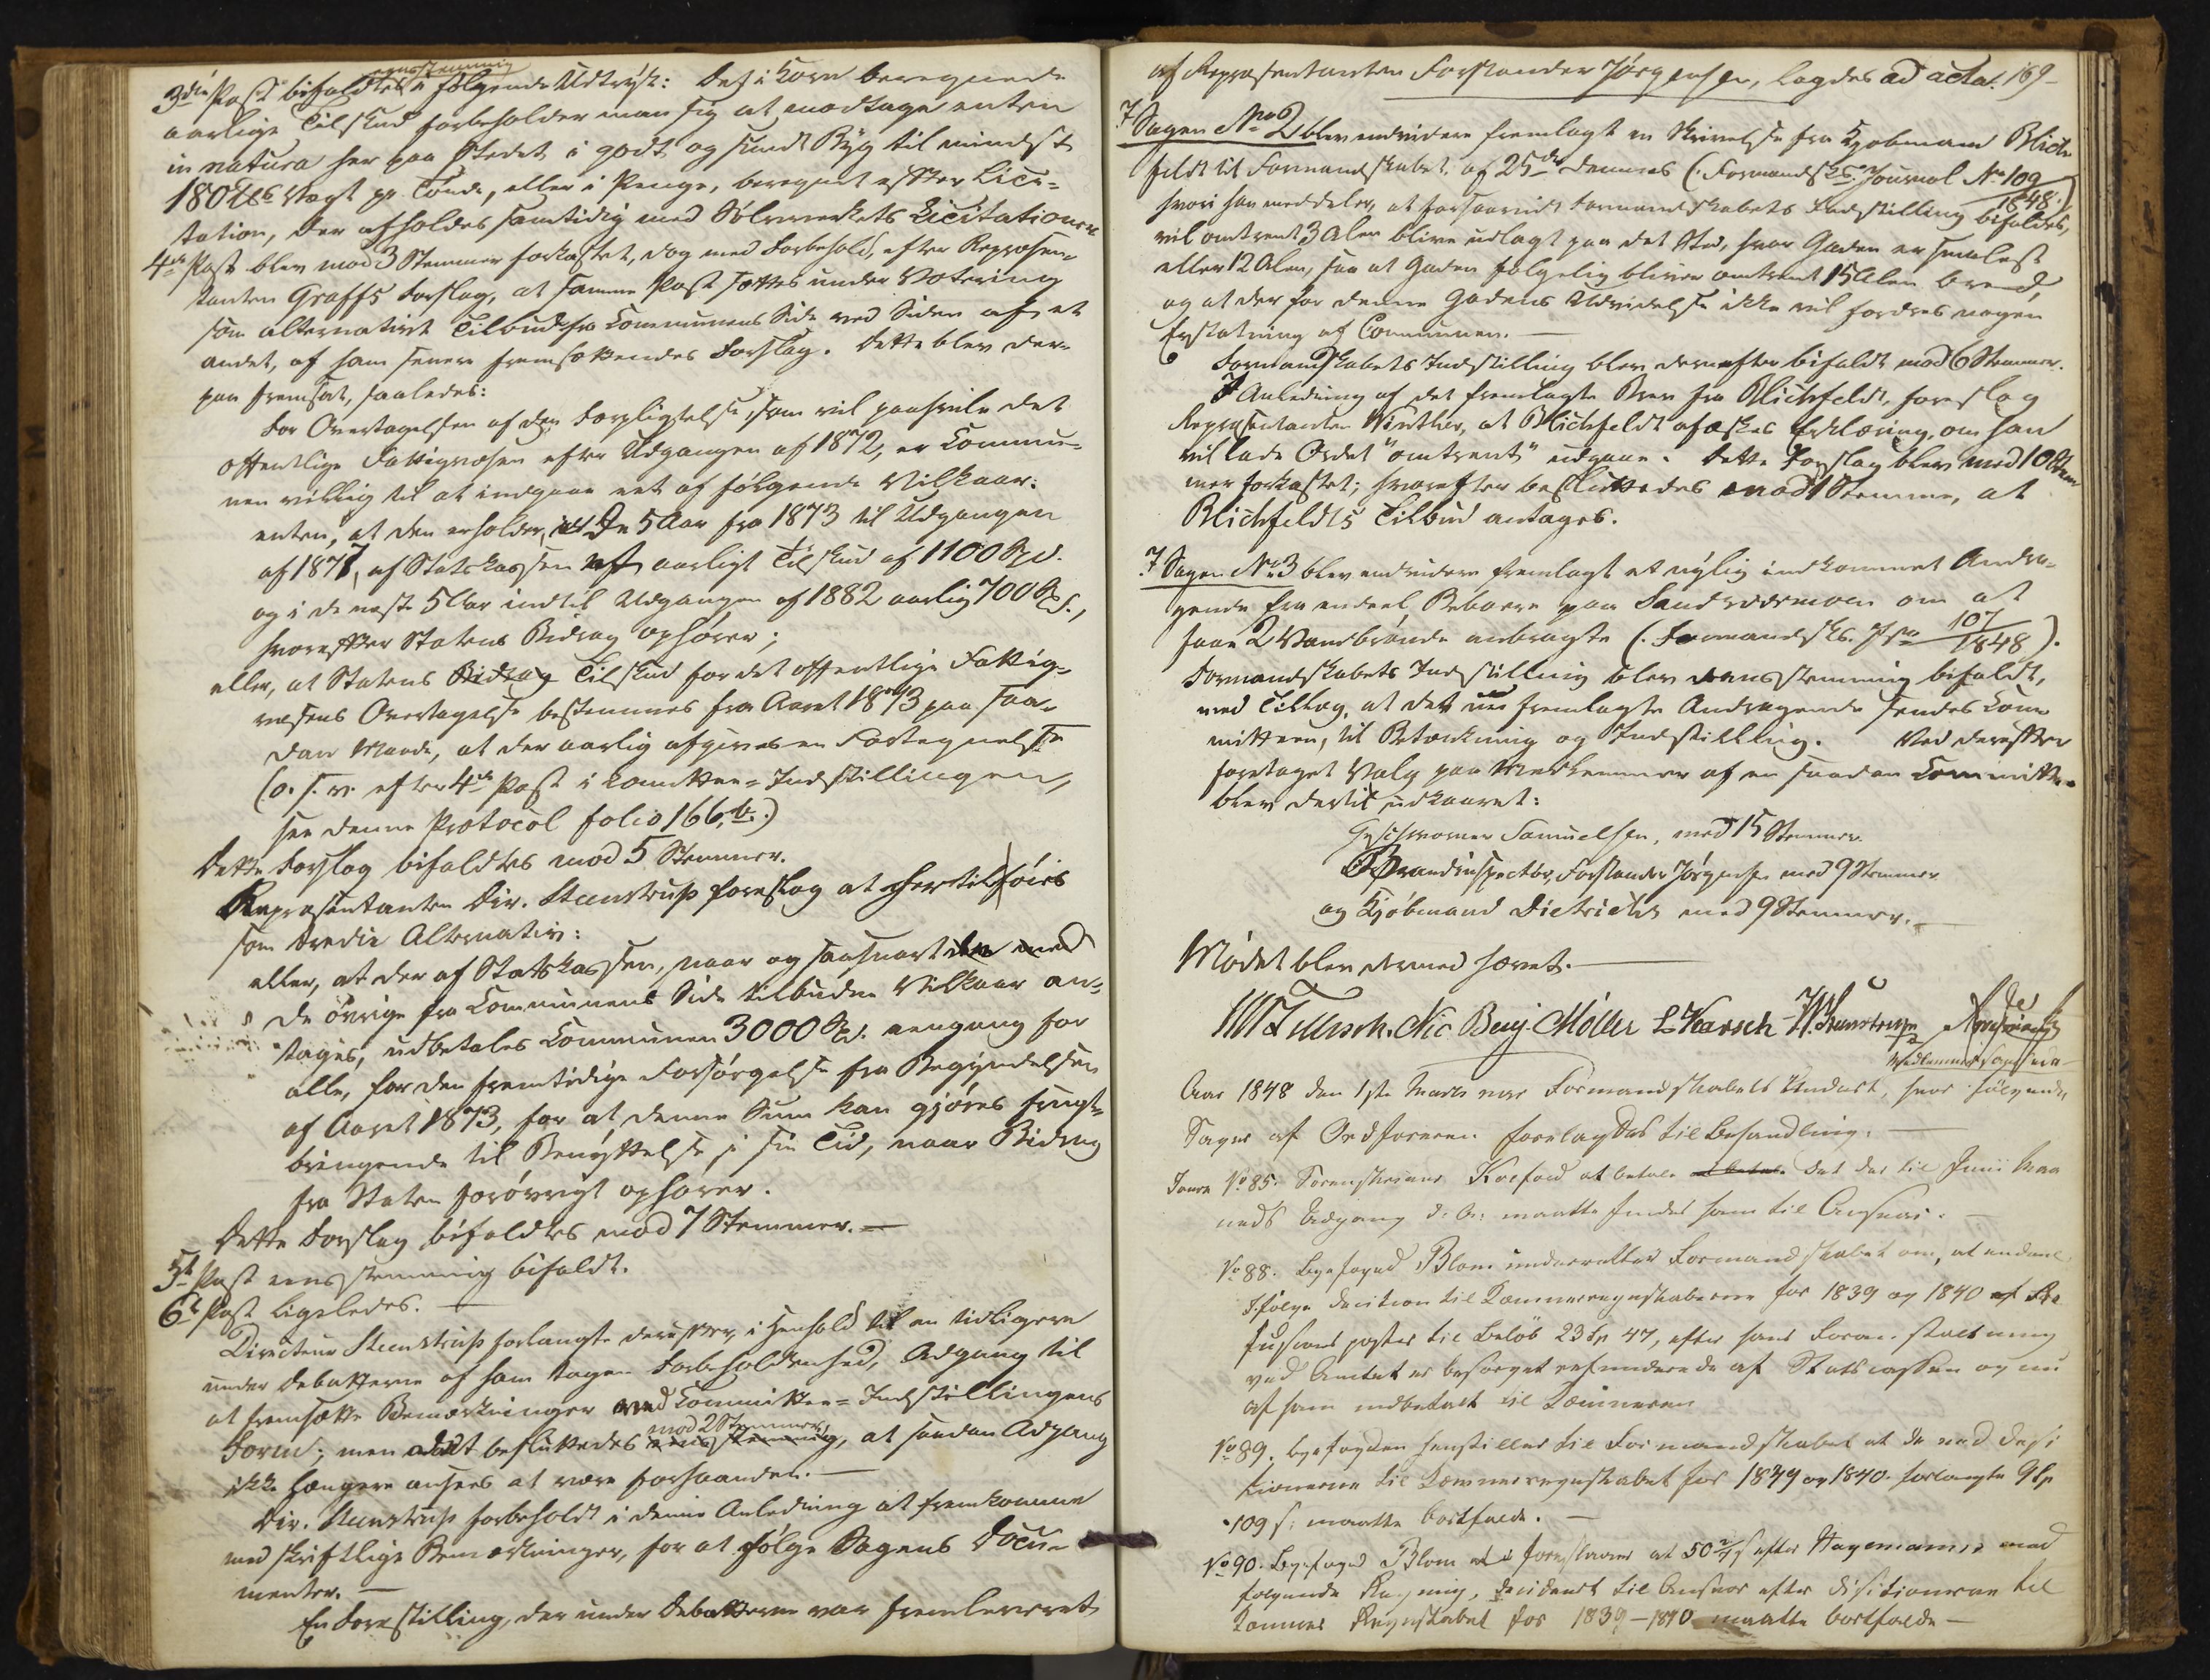 eensstemmig
3die Post bifaldtes i følgende Udtryk: Det i Korn beregnede
aarlige Tilskud forbeholder man sig at modtage enten
in natura her paa Stedet i godt og sundt Byg til mindst
180 Vægt pr. Tønde, eller i Penge, beregnet efter Lici-
tation, der afholdes samtidig med Sølvværkets Licitationer
4de Post blev mod 3 Stemmer forkastet, dog med Forbehold, efter Repræsen-
tanten Graffs Forslag, at samme Post sættes under Votering
som alternativt Tilbud fra Communens Side ved Siden af et
andet, af ham senere fremsættendes Forslag. Dette blev der-
paa fremsat, saaledes:
For Overtagelsen af den Forpligtelse, som vil paahvile det
offentlige Fattigvæsen efter Udgangen af 1872, er Commu-
nen villig til at indgaae eet af følgende Vilkaar:
enten, at den erholder, i de 5 Aar fra 1873 til Udgangen
af 1877, af Statskassen et aarligt Tilskud af 1100 Spd.
og i de næste 5 Aar indtil Udgangen af 1882 aarlig 700 Spd.,
hvorefter Statens Bidrag ophører;
eller, at Statens Bidrag Tilskud for det offentlige Fattig-
væsens Overtagelse bestemmes fra Aaret 1873 paa saa-
dan Maade, at der aarlig afgives en Fortegnelse
(o. s. v. efter 4de Post i Comittee-Indstillingen,
see denne Protocol folio 166, b.)
Dette Forslag bifaldtes mod 5 Stemmer.
Repræsentanten Dir. Steenstrup foreslog at hertil føies
som tredie Alternativ:
eller, at der af Statskassen, naar og saasnart den med
de øvrige fra Communens Side tilbudne Vilkaar an-
tages, udbetales Communen 3000 Spd. eengang for
alle, for den fremtidige Forsørgelse fra Begyndelsen
af Aaret 1873, for at denne Sum kan gjøres frugt-
bringende til Benyttelse i sin Tid, naar Bidrag
fra Staten forøvrigt ophører.
Dette Forslag bifaldtes mod 7 Stemmer. —
5te Post eensstemmig bifaldt.
6te Post ligeledes. —
Directeur Steenstrup forlangte derefter, i Henhold til en tidligere
under Debatterne af ham tagen Forbeholdenhed, Adgang til
at fremsætte Bemærkninger ved Committee-Indstillingens
mod 2 Stemmer
Form; men besluttedes eensstemmig, at saadan Adgang
ikke længere ansees at være forhaanden. —
Dir. Steenstrup forbeholdt i denne Anledning at fremkomme
med skriftlige Bemærkninger, for at følge Sagens Docu-
menter. —
En Forestilling, der under Debatterne var fremleveret
af Repræsentanten Forstander Jørgensen, lagdes ad acta. 169
I Sagen No 2 blev endvidere fremlagt en Skrivelse fra Kjøbmand Blich-
feldt til Formandskabet af 25de dennes (Formandsk. Journal No 109
1848.)
hvori han meddeler, at forsaavidt Formandskabets Indstilling bifaldes,
vil omtrent 3 Alen blive udlagt paa det Sted, hvor Gaden er smalest
eller 12 Alen, saa at Gaden følgelig bliver omtrent 15 Alen breed,
og at der for denne Gadens Udvidelse ikke vil fordres nogen
Erstatning af Communen. —
Formandskabets Indstilling blev derefter bifaldt mod 6 Stemmer.
I Anledning af det fremlagte Brev fra Blichfeldt, foreslog
Repræsentanten Winther, at Blichfeldt afæskes Erklæring, om han
vil lade Ordet "omtrent" udgaae. Dette Forslag blev mod 10 Stem-
mer forkastet; hvorefter besluttedes mod 1 Stemme, at
Blichfeldts Tilbud antages.
I Sagen No 3 blev endvidere fremlagt et nylig indkommet Andra-
gende fra endeel Beboere paa Sandsværmoen om at
faae 2 Vandbrønde anbragte (Formandsk. Jr. No 107
1848).
Formandskabets Indstilling blev eensstemmig bifaldt,
med Tillæg, at det nu fremlagte Andragende sendes Com-
mitteen, til Betænkning og Indstilling. Ved derefter
foretaget Valg paa Medlemmer af en saadan Committee
blev dertil udkaaret:
Geschworner Samuelsen, med 15 Stemmer
Brandinspector, Forstander Jørgensen med 9 Stemmer
og Kjøbmand Dietrichs med 9 Stemmer. —
Mødet blev dermed hævet. —
Nic Benj Møller L Karsch P. Steenstrup
Aar 1848 den 1ste Marts var Formandskabets samlet, hvor følgende
Sager af Ordføreren forelagdes til Behandling. —
Journ No 85. Sorenskriver Koefoed at betale at betale det til Junii Maa
neds Udgang d. A. maatte findes ham til Ansvar. —
No 88. Byefoged Blom underretter Formandskabet om, at endeel
Ifølge Decision til Kæmnerregnskaberne for 1839 og 1840 af Re
fusions poster til Beløb 23 Sp 47, efter hans Foran staltning
ved Amtet er besørget refunderede af Statscassen og nu
af ham indbetalt til Kæmneren
No 89. Byefogden henstiller til Formandskabet at de ved Deci
sionerne til Kæmnerregnskabet for 1839 og 1840 forlangte 9 Sp
109 s: maatte bortfalde. —
No 90. Byefoged Blom foreslaaer at 50 s efter Hagemanns med
følgende Regning, decideret til Ansvar efter Disitionerne til
Kæmner Regnskabet for 1839-1840 maatte bortfalde —